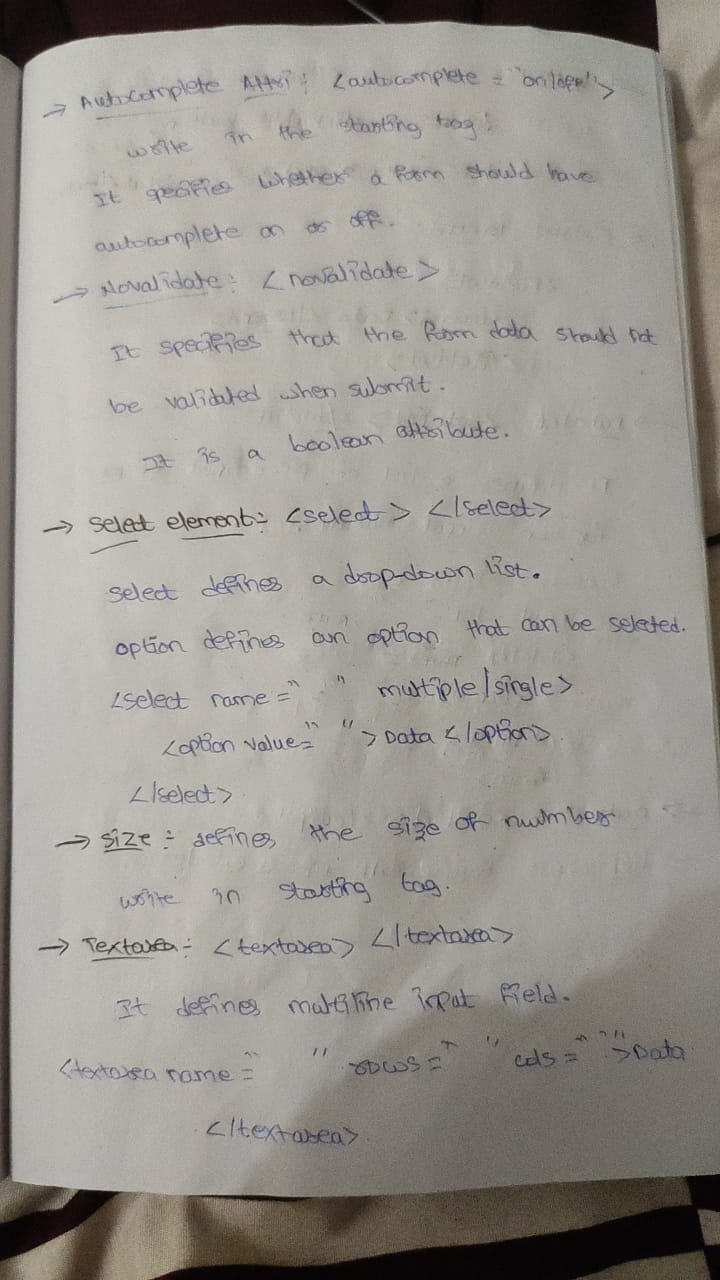 → Autocomplete Attri : <autocomplete = "on/off">
write in the starting tag.
It specifies whether a form should have
autocomplete on or off.
→ Novalidate : <novalidate>
It specifies that the form data should not
be validated when submit.
It is a boolean attribute.
→ Select element :- <select> </select>
Select defines a drop-down list.
option defines an option that can be seleted.
<select name = " " multiple/single>
<option value = " "> Data </option>
</select>
→ Size :- defines the size of number
write in starting tag.
→ Textarea :- <textarea> </textarea>
It defines multiline input field.
<textarea name = " " rows = " " cols = " "> Data
</textarea>